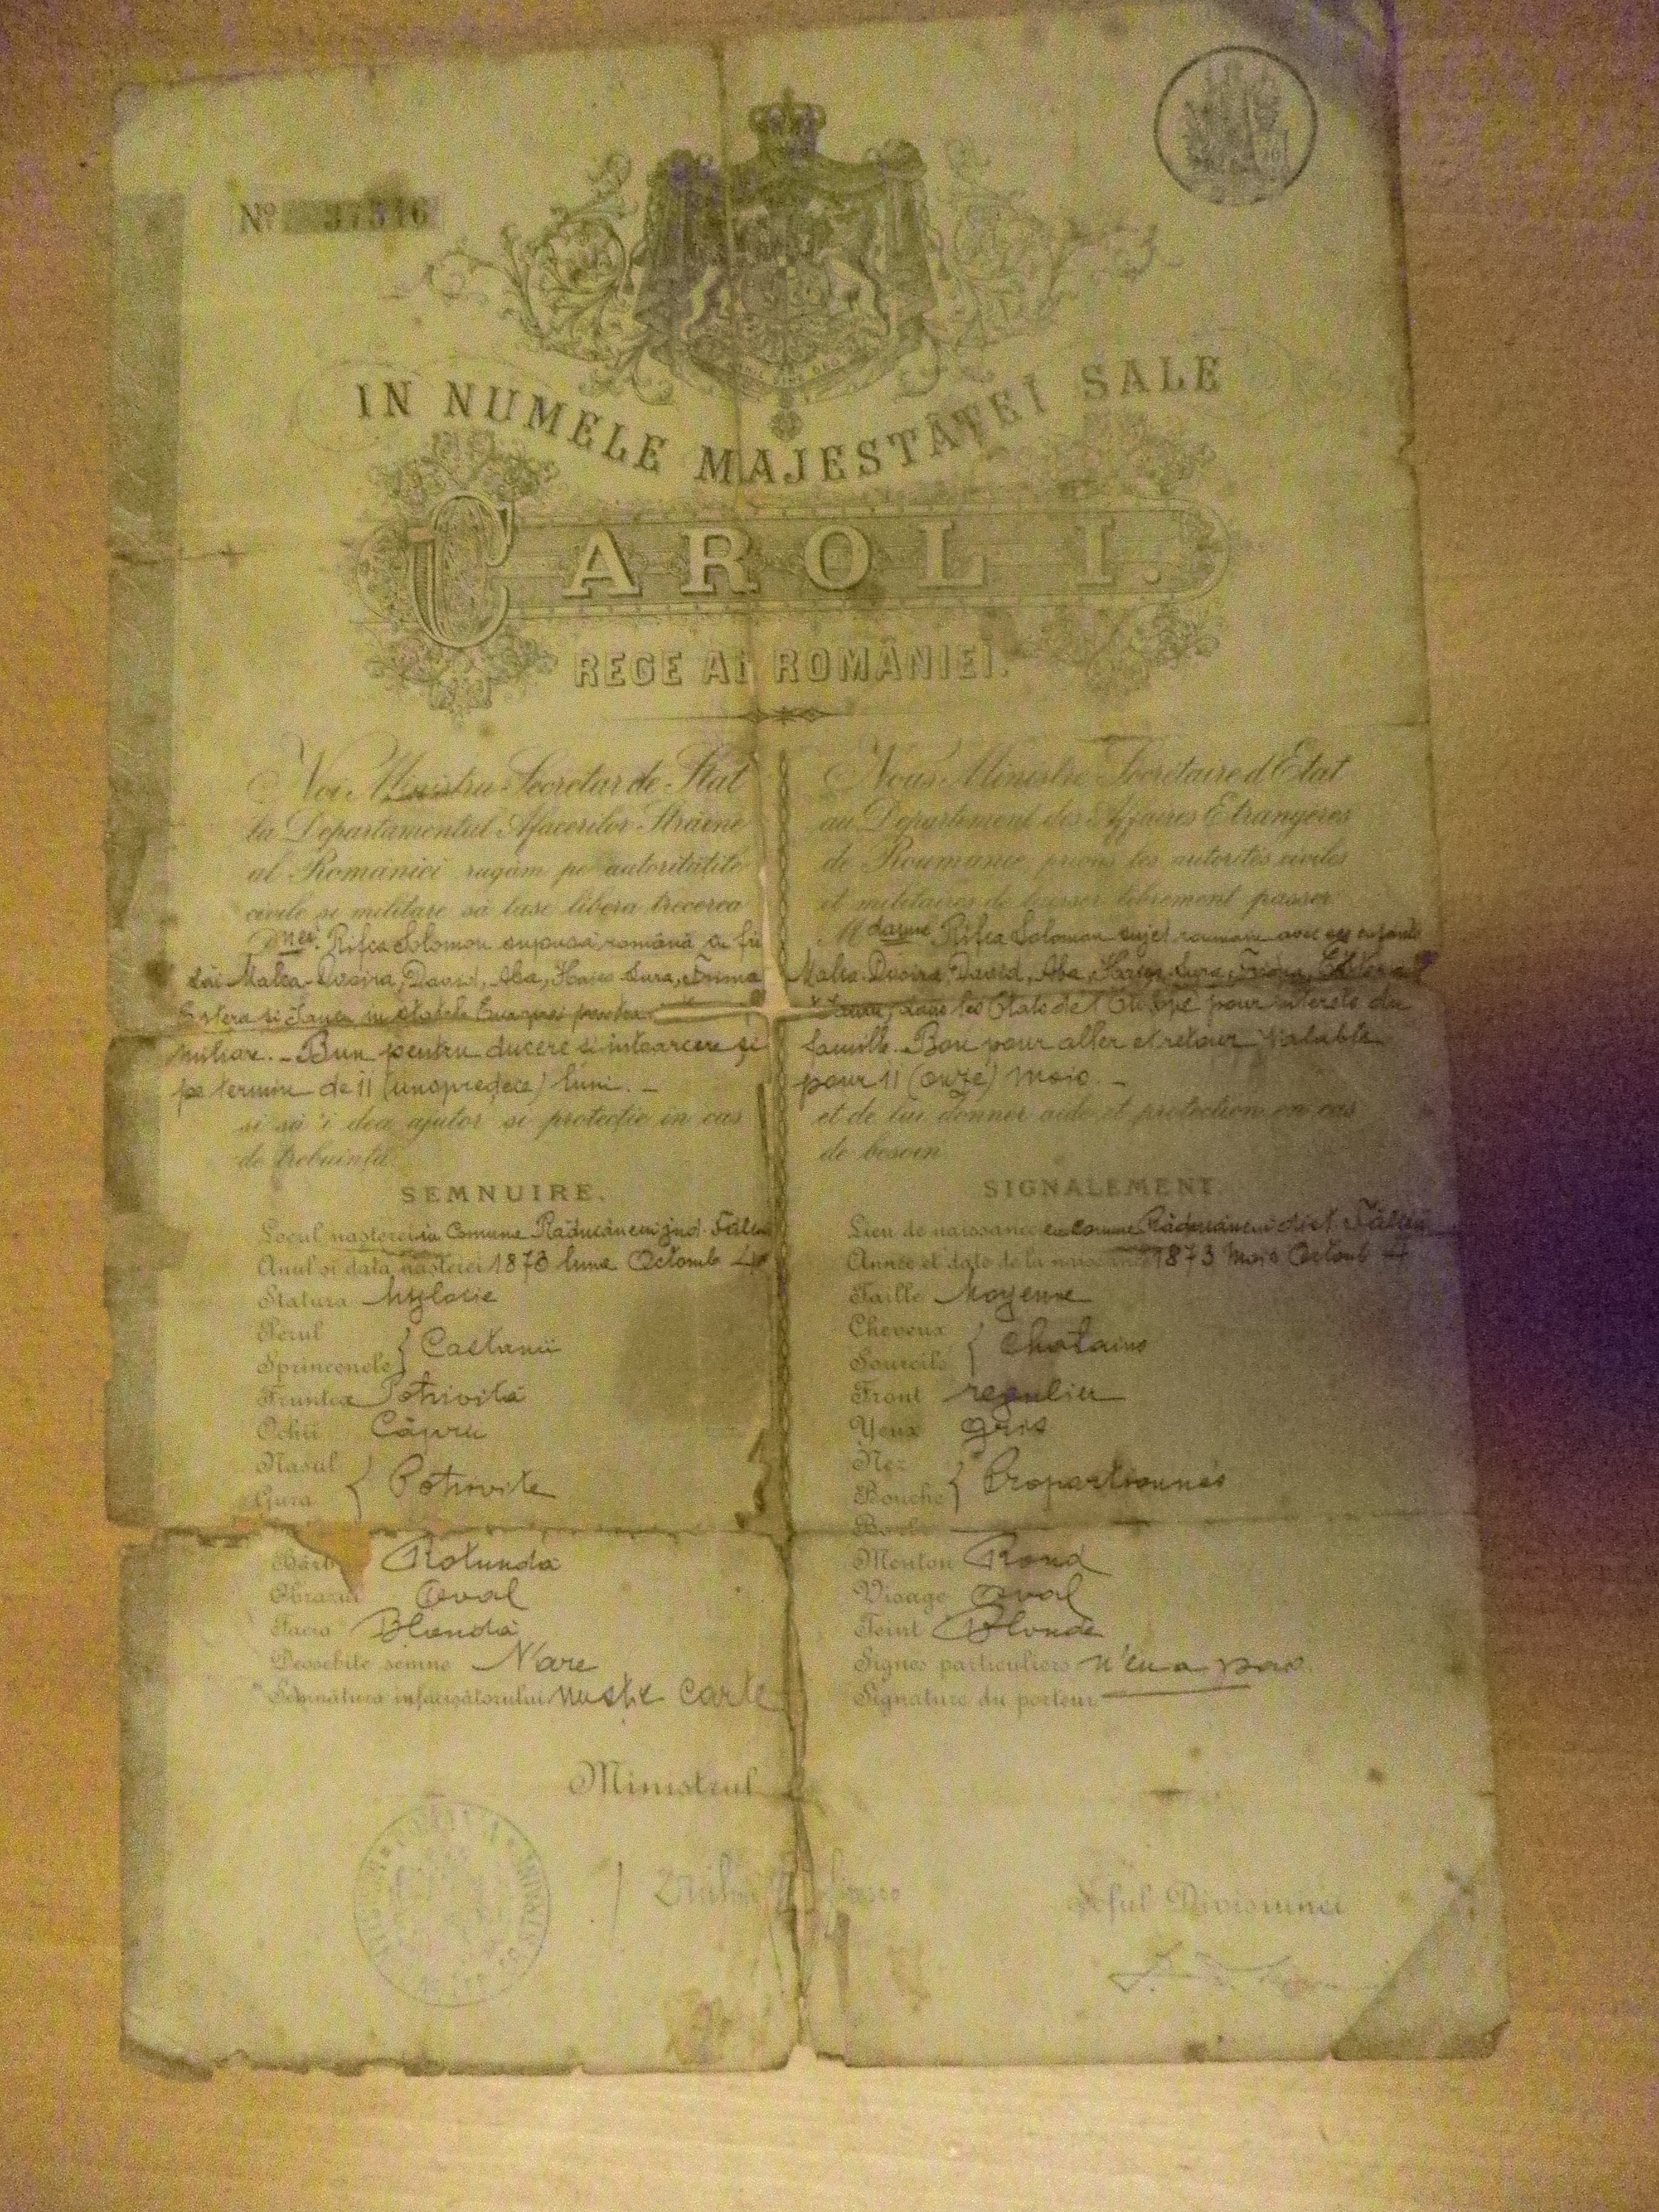 Nº 37516
NIHIL SINE DEO
IN NUMELE MAJESTĂȚEI SALE
CAROL I.
REGE AL ROMÂNIEI.
Noi Ministru Secretar de Stat
la Departamentul Afacerilor Străine
al României rugăm pe autoritățile
civile și militare să lase libera trecerea
Rifca Solomon supusă română cu fii
săi Malca-Dvoira, David, Aba, Haies Sura,
Estera și in statele Europei pentru
Bun pentru ducere și intoarcere și
pe termin de 11 (unsprezece) luni. –
și să 'i dea ajutor și protecție in cas
de trebuință.
SEMNUIRE.
Locul nașterei in Comuna Răducăneni jud. Fălciu
Anul și data nașterei 1873 luna Octomb 4
Statura Mijlocie
Perul
Sprincenele } Castanii
Fruntea Potrivită
Ochii Căprii
Nasul
Gura { Potrivite
Barb Rotundă
Obrazul Oval
Facia Blondă
Deosebite semne N'are
Semnătura infacișătorului nu știe carte
Ministrul
Nous Ministre Secrétaire d'Etat
au Département des Affaires Etrangères
de Roumanie, prions les autorités civiles
et militaires de laisser librement passer
Mdame Rifca Solomon sujet roumain avec ses enfants
Malca Dvoira, David, Aba, Sura,
dans les Etats de l'Europe pour interets de
famille. Bon pour aller et retour valable
pour 11 (onze) mois. –
et de lui donner aide et protection en cas
de besoin.
SIGNALEMENT.
Lieu de naissance en comune Răducăneni dist. Fălciu
Année et date de la naissance 1873 Mois Octomb 4
Taille Moyenne
Cheveux
Sourcils { Chatains
Front regulier
Yeux gris
Nez
Bouche } Proportionnés
Barbe
Menton Rond
Visage Oval
Teint Blonde
Signes particuliers n'en a pas.
Signature du porteur
Șeful Divisiunei